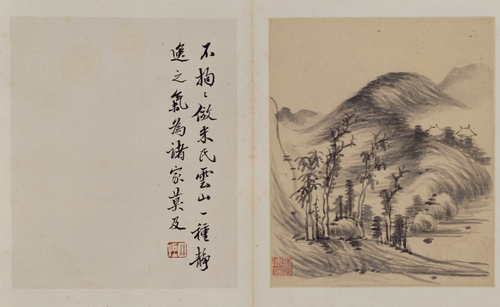 不拘々倣米氏雲山一種靜
逸之氣為諸家莫及